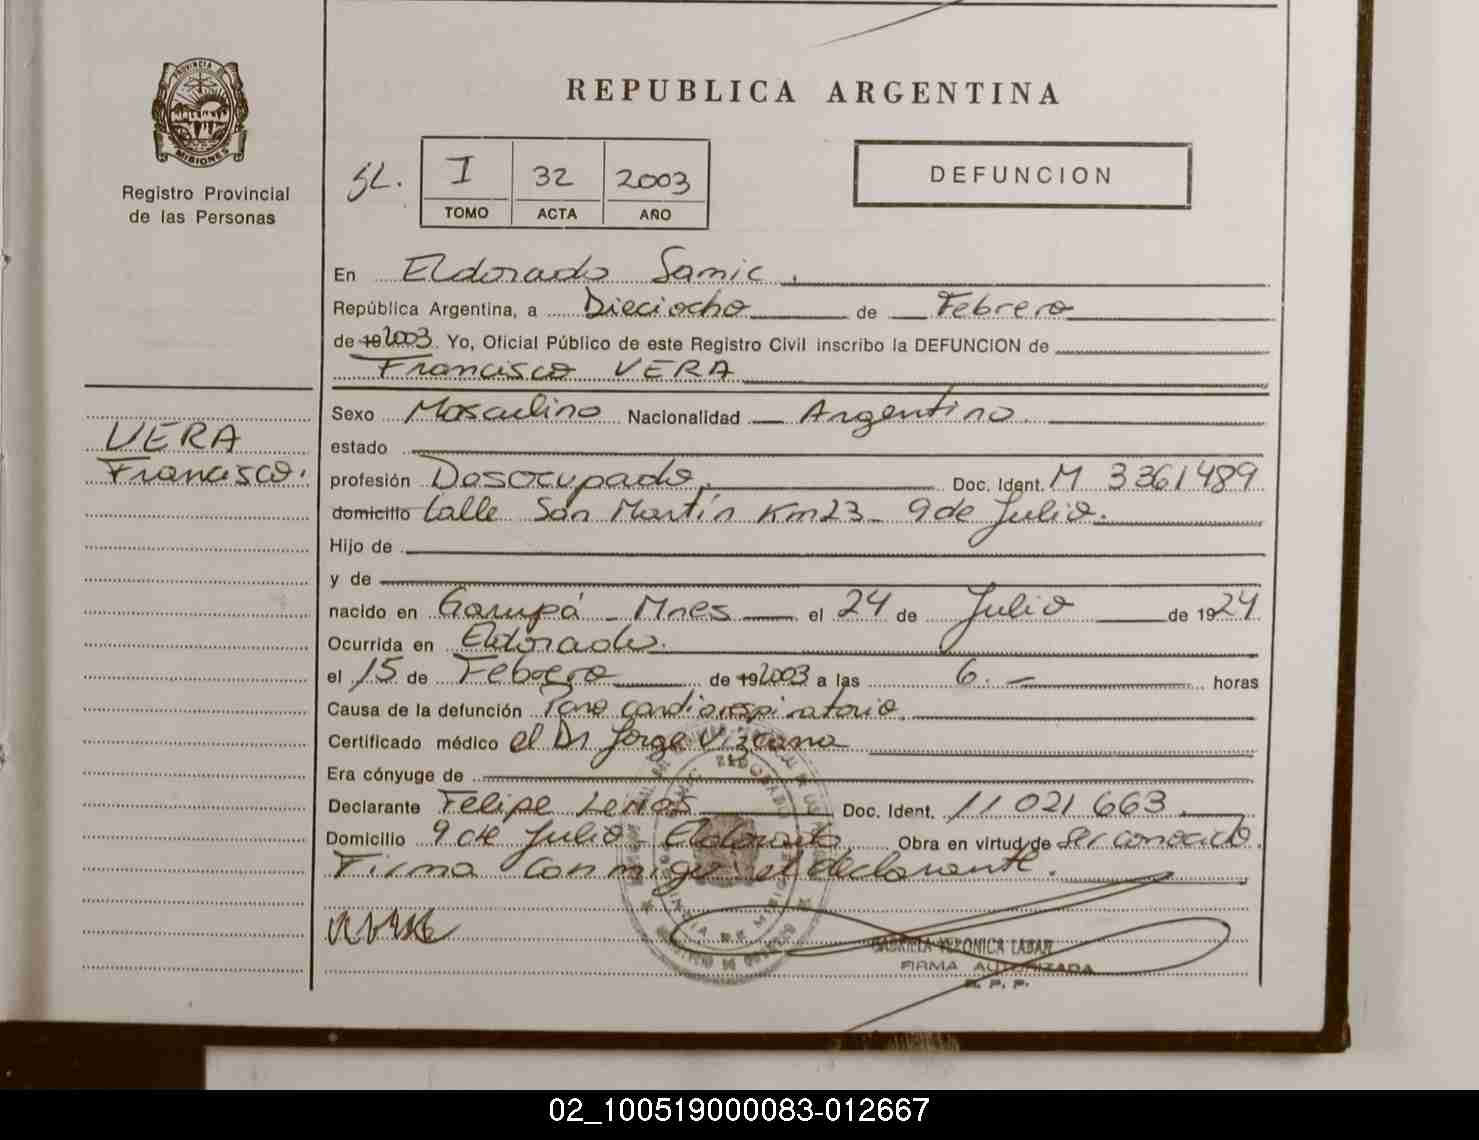 PROVINCIA DE
MISIONES
Registro Provincial
de las Personas
REPUBLICA ARGENTINA
DEFUNCION
I 32 2003
TOMO ACTA AÑO
En Eldorado Samic.
República Argentina, a Dieciocho de Febrero
de 19 2003. Yo, Oficial Público de este Registro Civil inscribo la DEFUNCION de
Francisco VERA
VERA
Francisco.
Sexo Masculino Nacionalidad Argentino.
estado
profesión Desocupado. Doc. Ident. M 3361489
domicilio Calle San Martín Km23 - 9 de Julio.
Hijo de
y de
nacido en Garupá - Mnes el 24 de Julio de 1924
Ocurrida en Eldorado.
el 15 de Febrero de 19 2003 a las 6. horas
Causa de la defunción Paro cardiorespiratorio.
Certificado médico el Dr Jorge Vizcano
Era cónyuge de
Declarante Felipe Lemos Doc. Ident. 11 021 663
Domicilio 9 de Julio - Eldorado. Obra en virtud de ser conocido.
Firma conmigo el declarante.
GABRIELA VERONICA LABAR
FIRMA AUTORIZADA
R. P. P.
02_100519000083-012667